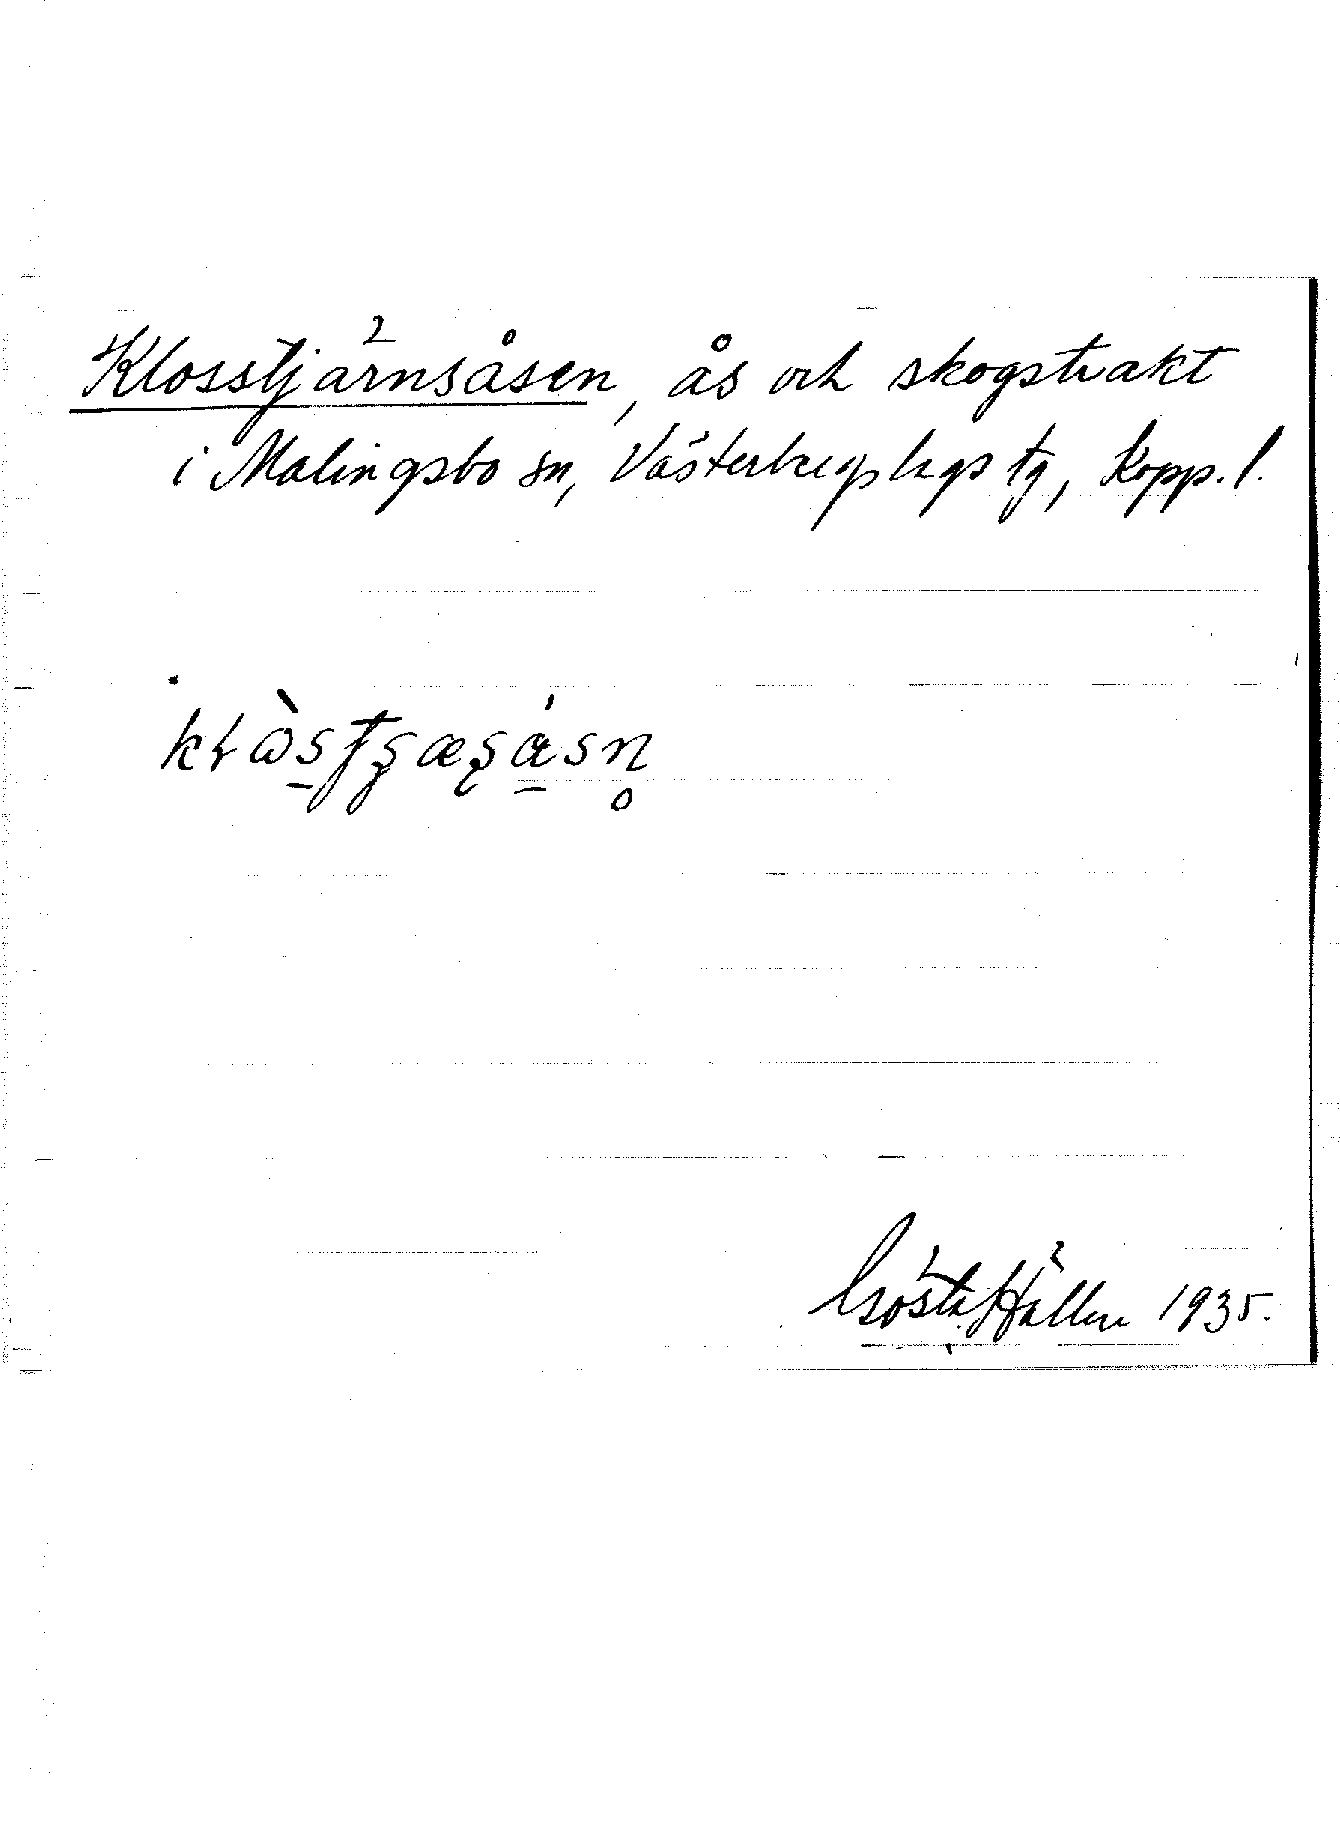 Klosstjärnsåsen, ås och skogstrakt
i Malingsbo sn, Västerbergslags tg, Kopp. l.
Gösta Hällen 1935.